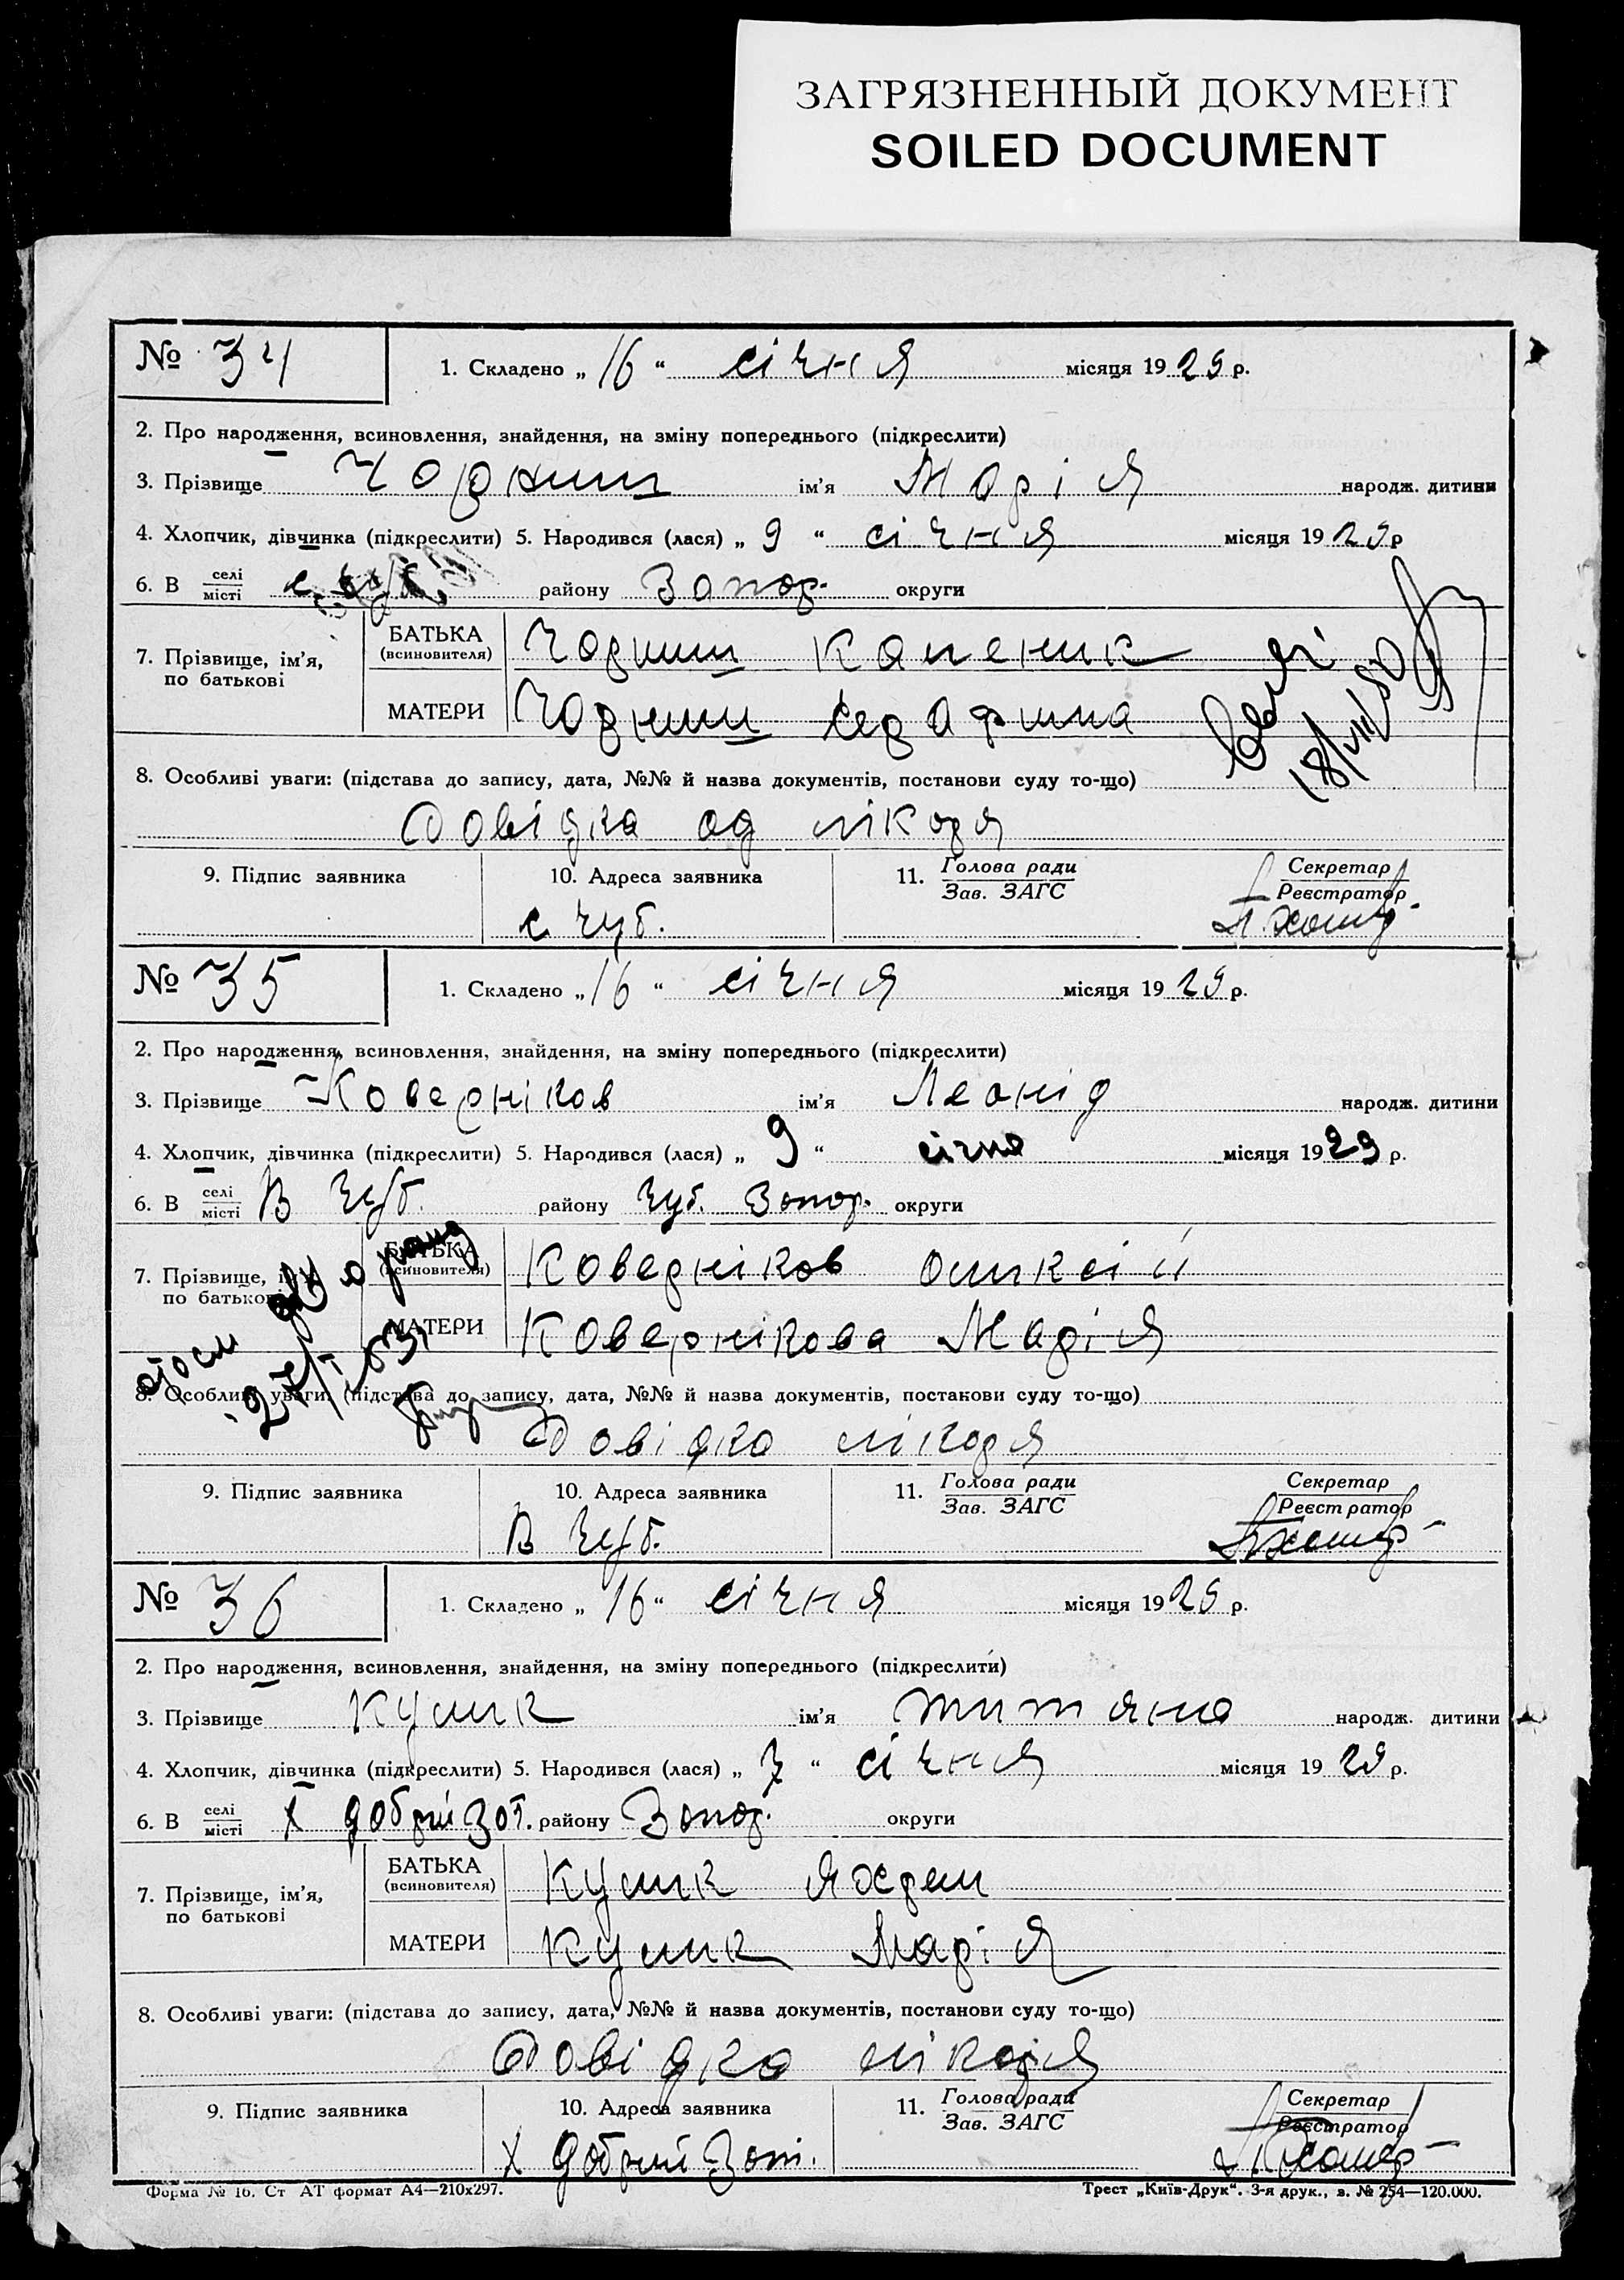 ЗАГРЯЗНЕННЫЙ ДОКУМЕНТ
SOILED DOCUMENT
№ 34
1. Складено „ 16 “ січня місяця 1929 р.
2. Про народження, всиновлення, знайдення, на зміну попереднього (підкреслити)
3. Прізвище Чорниш ім'я Марія народж. дитини
4. Хлопчик, дівчинка (підкреслити) 5. Народився (лася) „ 9 “ січня місяця 1929 р
6. В селі місті с. району Запор. округи
7. Прізвище, ім'я, по батькові
БАТЬКА (всиновителя) Чорниш Каленик
МАТЕРИ Чорниш Серафима
18/VIII 50
8. Особливі уваги: (підстава до запису, дата, №№ й назва документів, постанови суду то-що)
Довідка од лікаря
9. Підпис заявника 10. Адреса заявника 11. Голова ради Зав. ЗАГС Секретар Реєстратор
с Чуб.
№ 35
1. Складено „ 16 “ січня місяця 1929 р.
2. Про народження, всиновлення, знайдення, на зміну попереднього (підкреслити)
3. Прізвище Коверніков ім'я Леонід народж. дитини
4. Хлопчик, дівчинка (підкреслити) 5. Народився (лася) „ 9 “ січня місяця 1929 р.
6. В селі місті В Чуб. району Чуб. Запор. округи
7. Прізвище, ім'я, по батькові
БАТЬКА (всиновителя) Коверніков Оликсій
МАТЕРИ Ковернікова Марія
27/I 53
8. Особливі уваги: (підстава до запису, дата, №№ й назва документів, постанови суду то-що)
Довідка лікаря
9. Підпис заявника 10. Адреса заявника 11. Голова ради Зав. ЗАГС Секретар Реєстратор
В Чуб.
№ 36
1. Складено „ 16 “ січня місяця 1929 р.
2. Про народження, всиновлення, знайдення, на зміну попереднього (підкреслити)
3. Прізвище Кулик ім'я Титяна народж. дитини
4. Хлопчик, дівчинка (підкреслити) 5. Народився (лася) „ 7 “ січня місяця 1929 р.
6. В селі місті Х добрий Зат. району Запор. округи
7. Прізвище, ім'я, по батькові
БАТЬКА (всиновителя) Кулик Яхрем
МАТЕРИ Кулик Марія
8. Особливі уваги: (підстава до запису, дата, №№ й назва документів, постанови суду то-що)
Довідка лікаря
9. Підпис заявника 10. Адреса заявника 11. Голова ради Зав. ЗАГС Секретар Реєстратор
Х добрий Зат.
Форма № 16. Ст АТ формат А4—210х297. Трест „Київ-Друк“. 3-я друк., з. № 254—120.000.